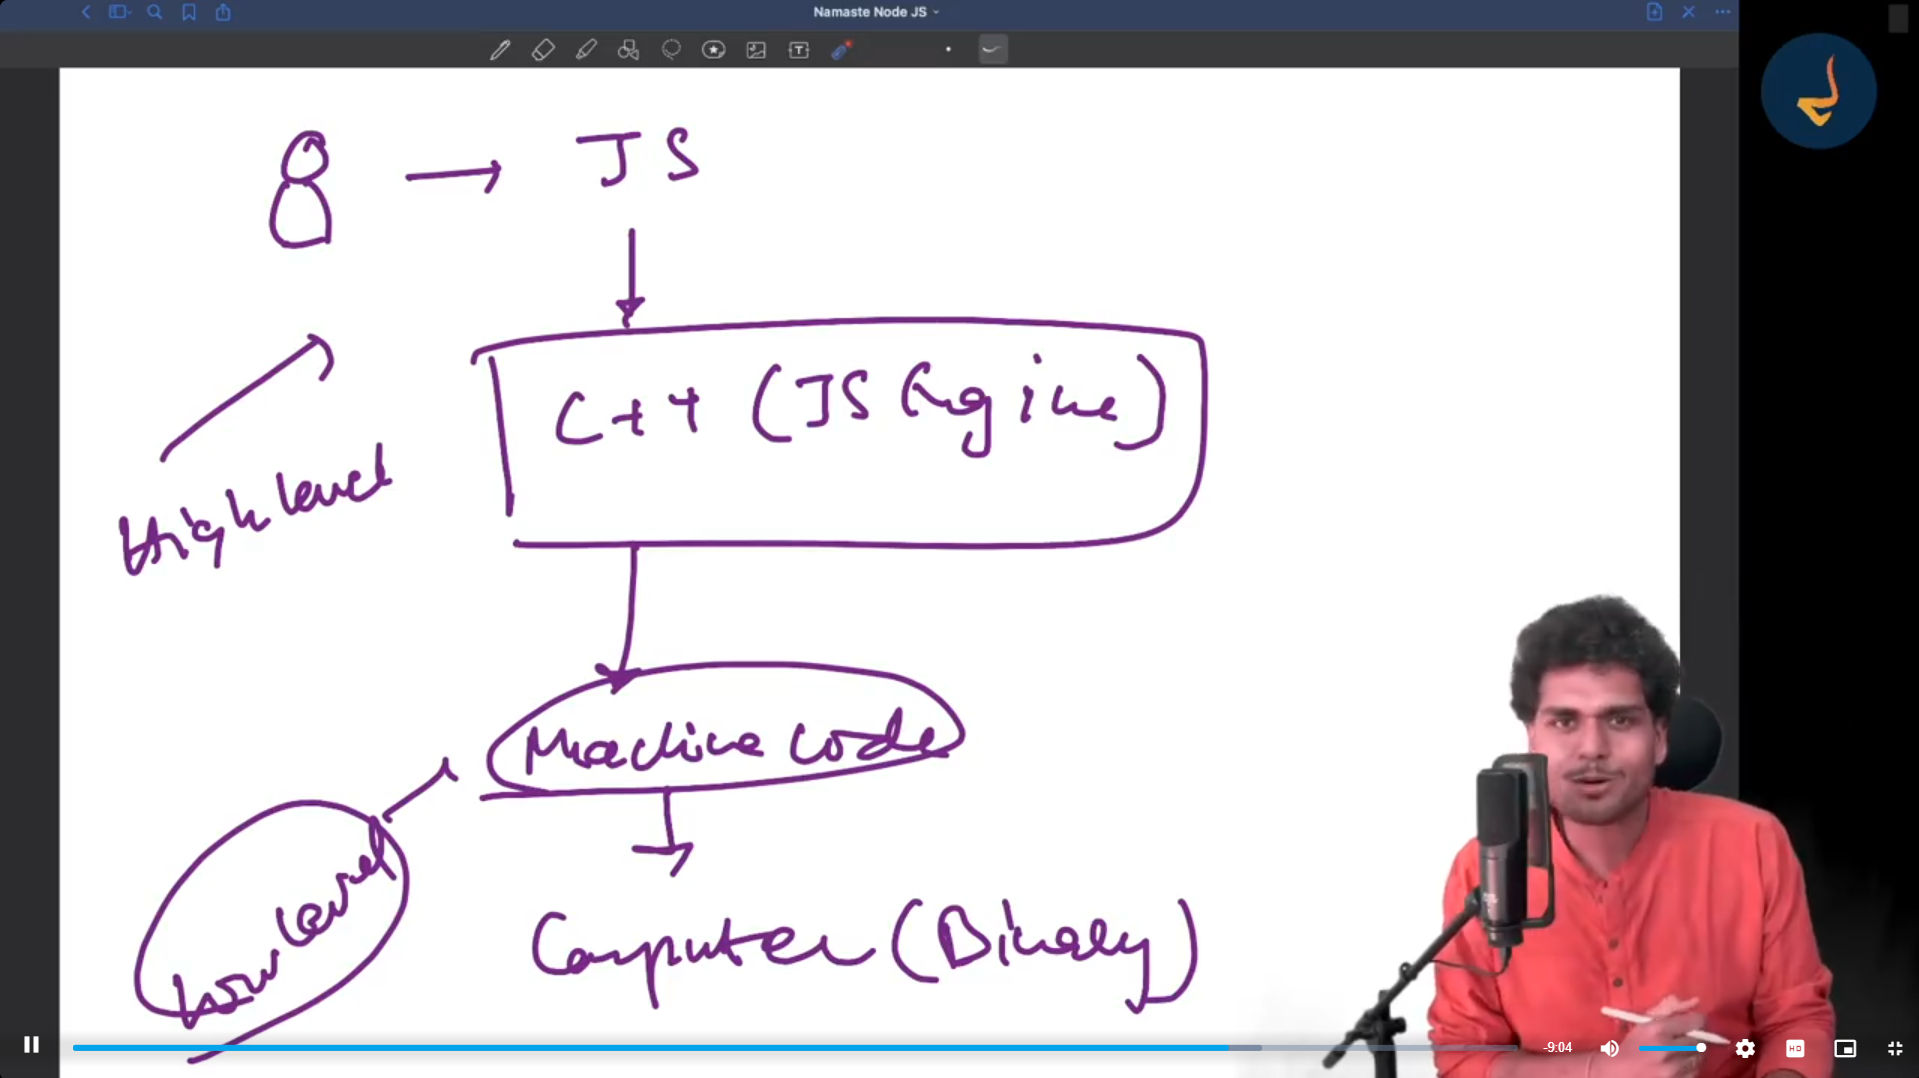 Namaste Node JS
JS
C++ (JS Engine)
High level
Machine code
Low Level
Computer (Binary)
-9:04
HD